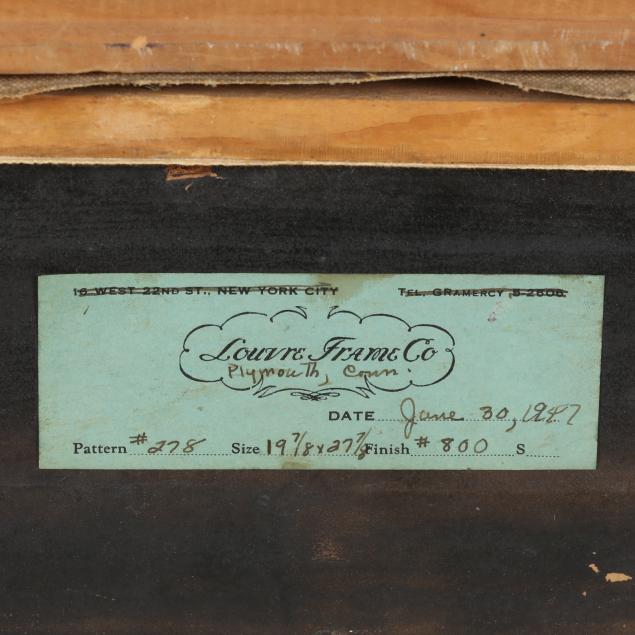 16 WEST 22ND ST., NEW YORK CITY TEL. GRAMERCY 5-2606
Louvre Frame Co
Plymouth, Conn.
DATE June 30, 1947
Pattern #278 Size 19 7/8 x 27 7/8 Finish #800 S